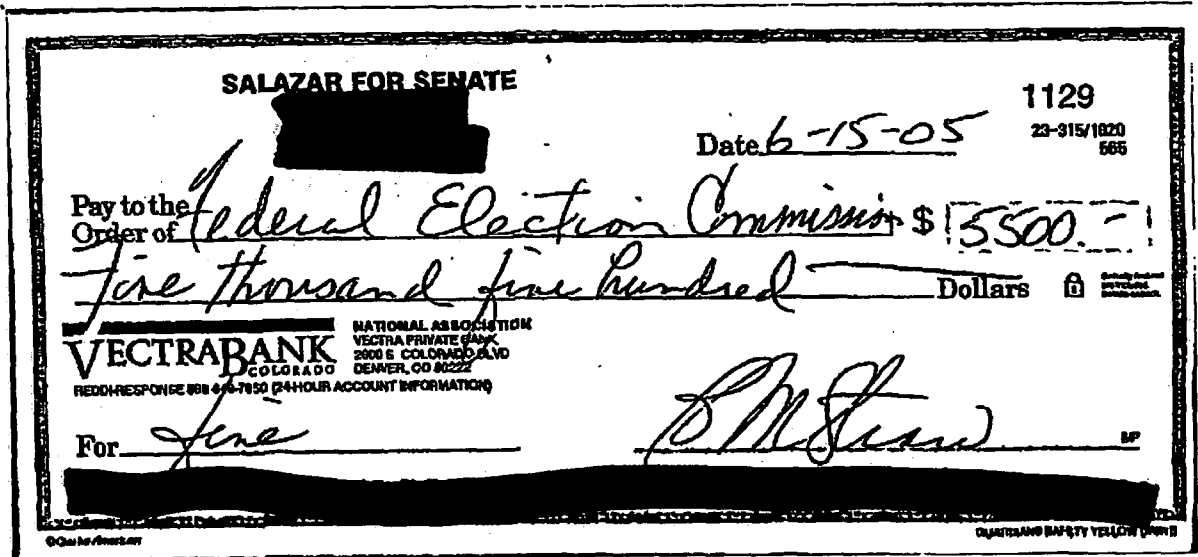 SALAZAR FOR SENATE
1129
23-315/1020
565
Date 6-15-05
Pay to the
Order of Federal Election Commission $ 5500.-
Five thousand five hundred Dollars
VECTRA BANK
COLORADO
NATIONAL ASSOCIATION
VECTRA PRIVATE BANK
2000 S COLORADO BLVD
DENVER, CO 80222
(24-HOUR ACCOUNT INFORMATION)
For fine
MP